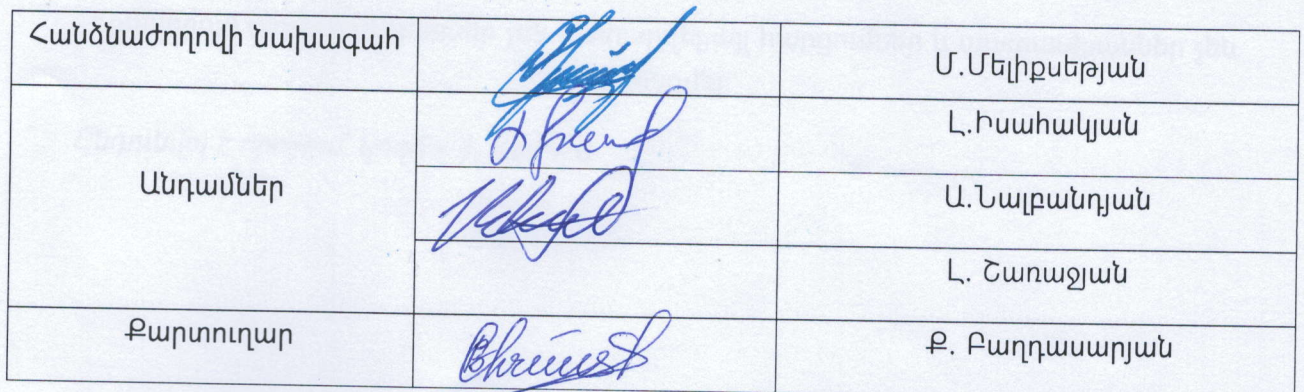 Հանձնաժողովի նախագահ
Մ.Մելիքսեթյան
Լ.Իսահակյան
Անդամներ
Ա.Նալբանդյան
Լ. Շառաջյան
Քարտուղար
Ք. Բաղդասարյան